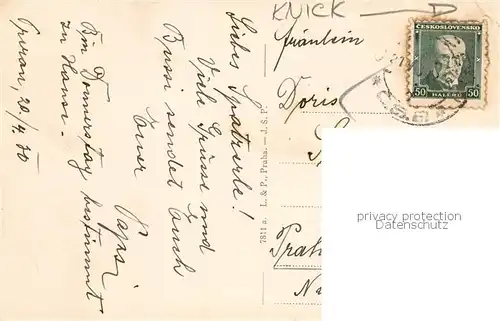 Liebes Spatzerle!
Viele Grüsse und
Bussi sendet Euch
Euer Papsi
Bin Donnerstag bestimmt
zu Hause.
20/4.30
7811 a. L. & P., Praha. — J. S. P.
KNICK
ČESKOSLOVENSKO
50 HALÉŘŮ 50
Fräulein
Doris
privacy protection
Datenschutz